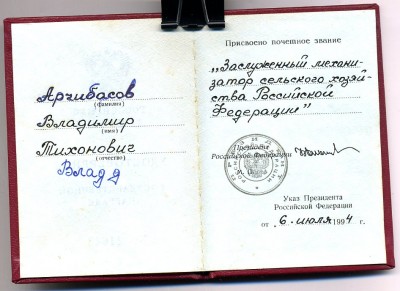 Аргибасов
(фамилия)
Владимир
(имя)
Тихонович
(отчество)
Влад д
Присвоено почетное звание
„Заслуженный механи-
затор сельского хозяй-
ства Российской
Федерации"
Президент
Российской Федерации
М. П.
Указ Президента
Российской Федерации
от 6 июля 1994 г.